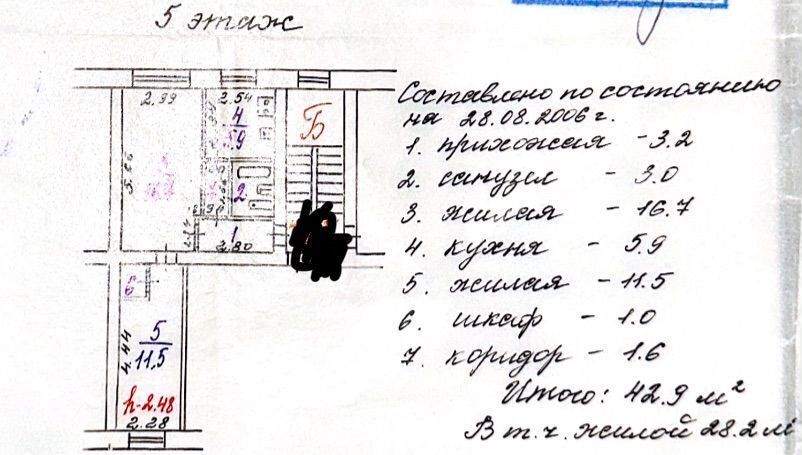 5 этаж
Составлено по состоянию
на 28.08.2006 г.
1. прихожая - 3.2
2. санузел - 3.0
3. жилая - 16.7
4. кухня - 5.9
5. жилая - 11.5
6. шкаф - 1.0
7. коридор - 1.6
Итого: 42.9 м²
В т.ч. жилой 28.2 м²
2.99
2.54
4
5.9
Б
2
1
2.80
6
5
11,5
4.44
h-2.48
2.28